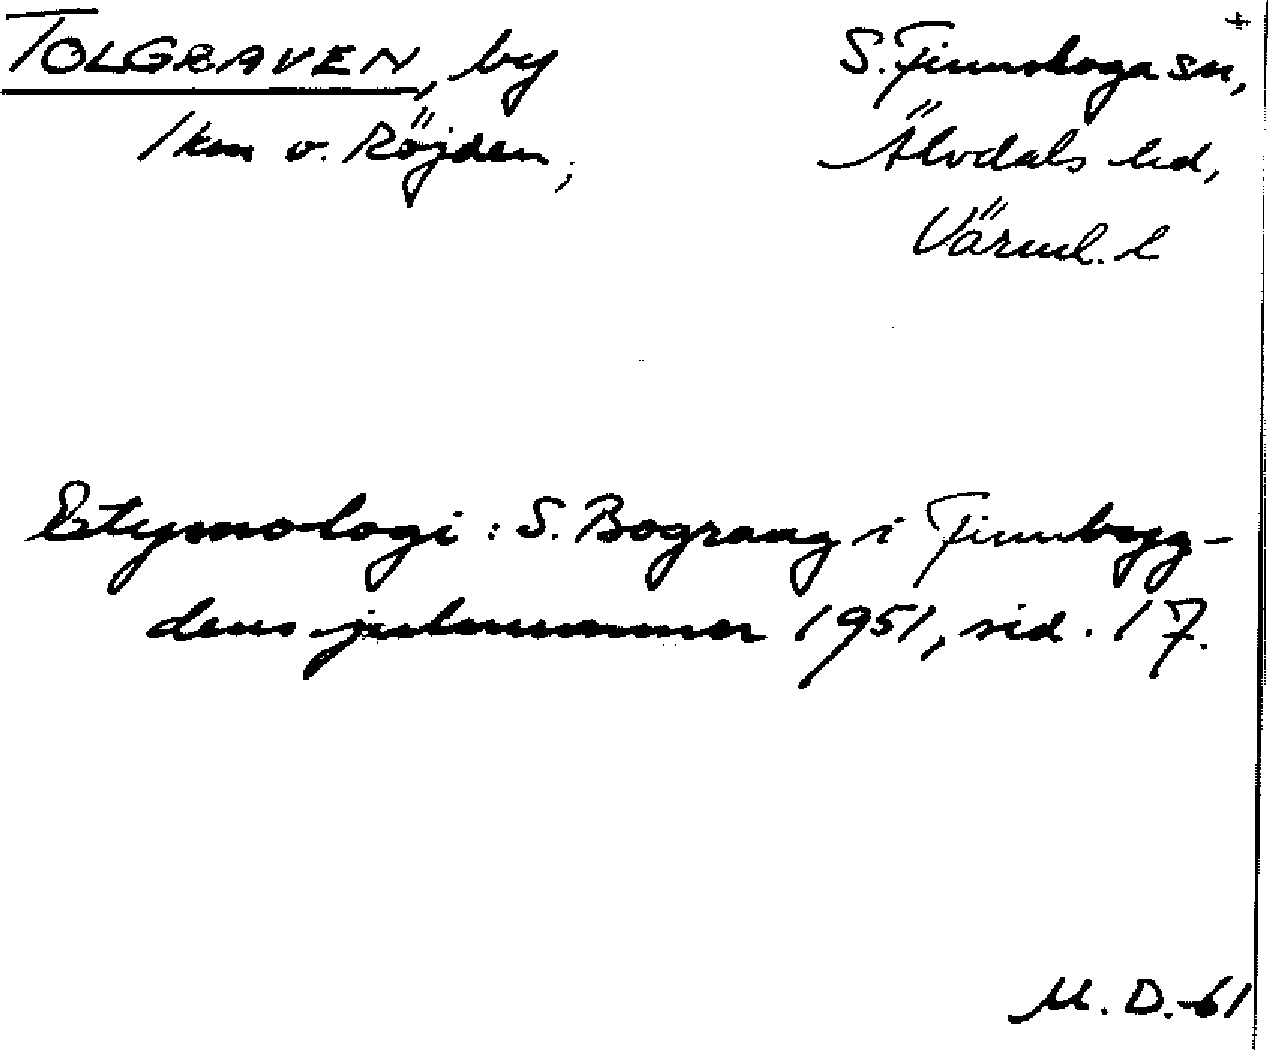 TOLGRAVEN, by
1 km v. Röjden,
S. Finnskoga sn,
Älvdals hd,
Värml. l
Etymologi: S. Bograng i Finnbyg-
dens julnummer 1951, sid. 17.
M. D. -61